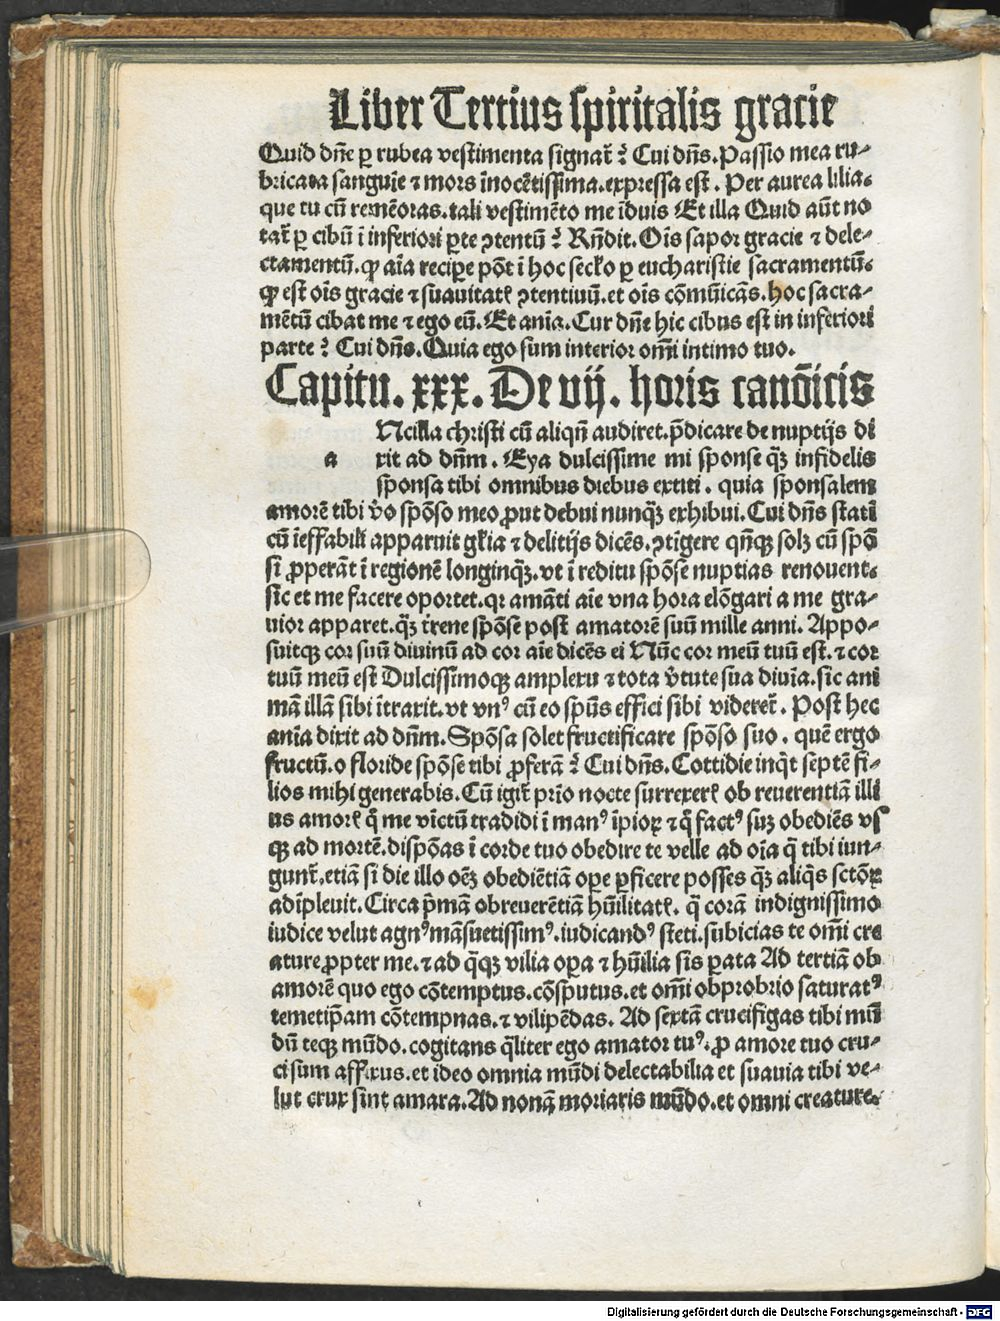 Liber Tertius spiritalis gracie
Quid dñe ꝑ rubea vestimenta signat᷑ ? Cui dñs. Passio mea ru⸗
bricata sanguĩe ⁊ mors ĩnocẽtissima. expressa est . Per aurea lilia.
que tu cũ remẽoras. tali vestimẽto me ĩduis Et illa Quid aũt no
tat᷑ ꝑ cibũ ĩ inferiori ꝑte ꝯtentũ ? Rñdit. Oĩs sapor gracie ⁊ dele⸗
ctamentũ. ꝙ aĩa recipe põt ĩ hoc seclo ꝑ eucharistie sacramentũ.
ꝙ est oĩs gracie ⁊ suauitatꝭ ꝯtentiuũ. et oĩs cõmũicãs. hoc sacra⸗
mẽtũ cibat me ⁊ ego eũ. Et anĩa. Cur dñe hic cibus est in inferiori
parte ? Cui dñs. Quia ego sum interior omĩ intimo tuo.
Capitu. xxx. De vij. horis canõicis
Ncilla christi cũ aliqñ audiret. p̃dicare de nuptijs di
a xit ad dñm . Eya dulcissime mi sponse q̃ꝫ infidelis
sponsa tibi omnibus diebus extiti . quia sponsalem
amorẽ tibi v̾o spõso meo ꝓut debui nunq̃ꝫ exhibui. Cui dñs statĩ
cũ ĩeffabili apparuit gl̃ia ⁊ delitijs dicẽs. ꝯtĩgere qñqꝫ solꝫ cũ spõ
si ꝓperãt ĩ regionẽ longinq̃ꝫ. vt ĩ reditu spõse nuptias renouent.
sic et me facere oportet. qꝛ amãti aĩe vna hora elõgari a me gra⸗
uior apparet. q̃ꝫ t̾rene spõse post amatorẽ suũ mille anni. Appo⸗
suitqꝫ cor suũ diuinũ ad cor aĩe dicẽs ei Nũc cor meũ tuũ est. ⁊ cor
tuũ meũ est Dulcissimoqꝫ amplexu ⁊ tota v̾tute sua diuĩa. sic ani
mã illã sibi ĩtraxit. vt vnꝰ cũ eo spũs effici sibi videret᷑ . Post hec
anĩa dixit ad dñm. Spõsa solet fructificare spõso suo . quẽ ergo
fructũ. o floride spõse tibi ꝓferã ? Cui dñs. Cottidie inq̃t septẽ fi⸗
lios mihi generabis. Cũ igit᷑ prĩo nocte surrexerꝭ ob reuerentiã illi
us amorꝭ q̃ me victũ tradidi ĩ manꝰ ĩpioꝝ ⁊ q̃ factꝰ suꝫ obediẽs vs
qꝫ ad mortẽ. dispõas ĩ corde tuo obedire te velle ad oĩa q̃ tibi iun⸗
gunt᷑. etiã si die illo oẽꝫ obediẽtiã oꝑe ꝑficere posses q̃ꝫ aliq̃s sctõꝝ
adĩpleuit. Circa p̃mã ob reuerẽtiã hũilitatꝭ. q̃ corã indignissimo
iudice velut agnꝰ mãsuetissimꝰ. iudicandꝰ steti. subicias te omĩ cre
ature ꝓpter me. ⁊ ad q̃qꝫ vilia oꝑa ⁊ hũilia sis ꝑata Ad tertiã ob
amorẽ quo ego cõtemptus. cõsputus. et omĩ obprobrio saturatꝰ
temetip̃am cõtempnas. ⁊ vilipẽdas. Ad sextã crucifigas tibi mũ
dũ teqꝫ mũdo. cogitans q̃liter ego amator tuꝰ. ꝓ amore tuo cru⸗
ci sum affixus. et ideo omnia mũdi delectabilia et suauia tibi ve⸗
lut crux sint amara. Ad nonã moriaris mũdo. et omni creature.
Digitalisierung gefördert durch die Deutsche Forschungsgemeinschaft - DFG